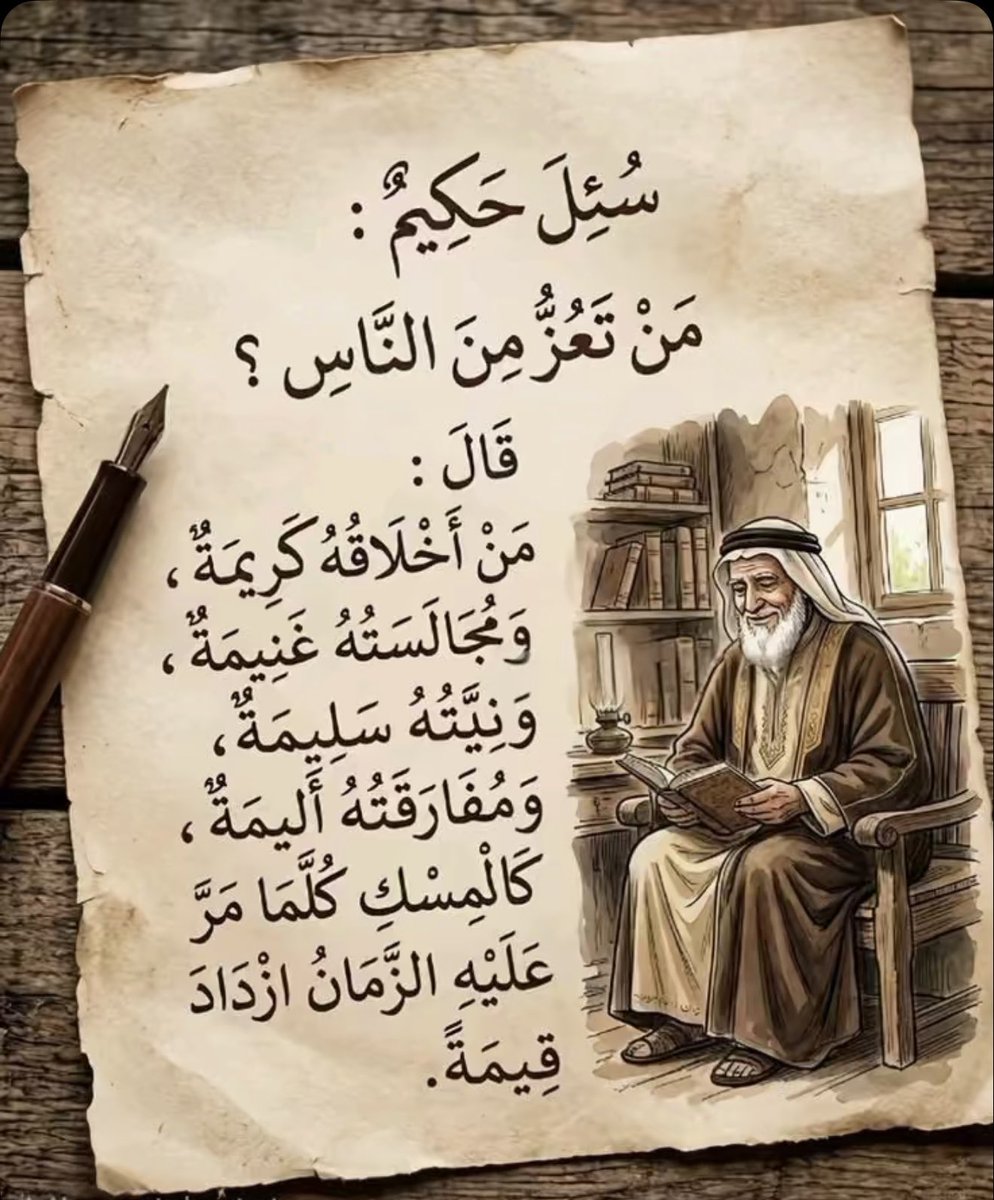 سُئِلَ حَكِيمٌ :
مَنْ تَعُزُّ مِنَ النَّاسِ ؟
قَالَ :
مَنْ أَخْلَاقُهُ كَرِيمَةٌ ،
وَمُجَالَسَتُهُ غَنِيمَةٌ ،
وَنِيَّتُهُ سَلِيمَةٌ ،
وَمُفَارَقَتُهُ أَلِيمَةٌ ،
كَالْمِسْكِ كُلَّمَا مَرَّ
عَلَيْهِ الزَّمَانُ ازْدَادَ
قِيمَةً .